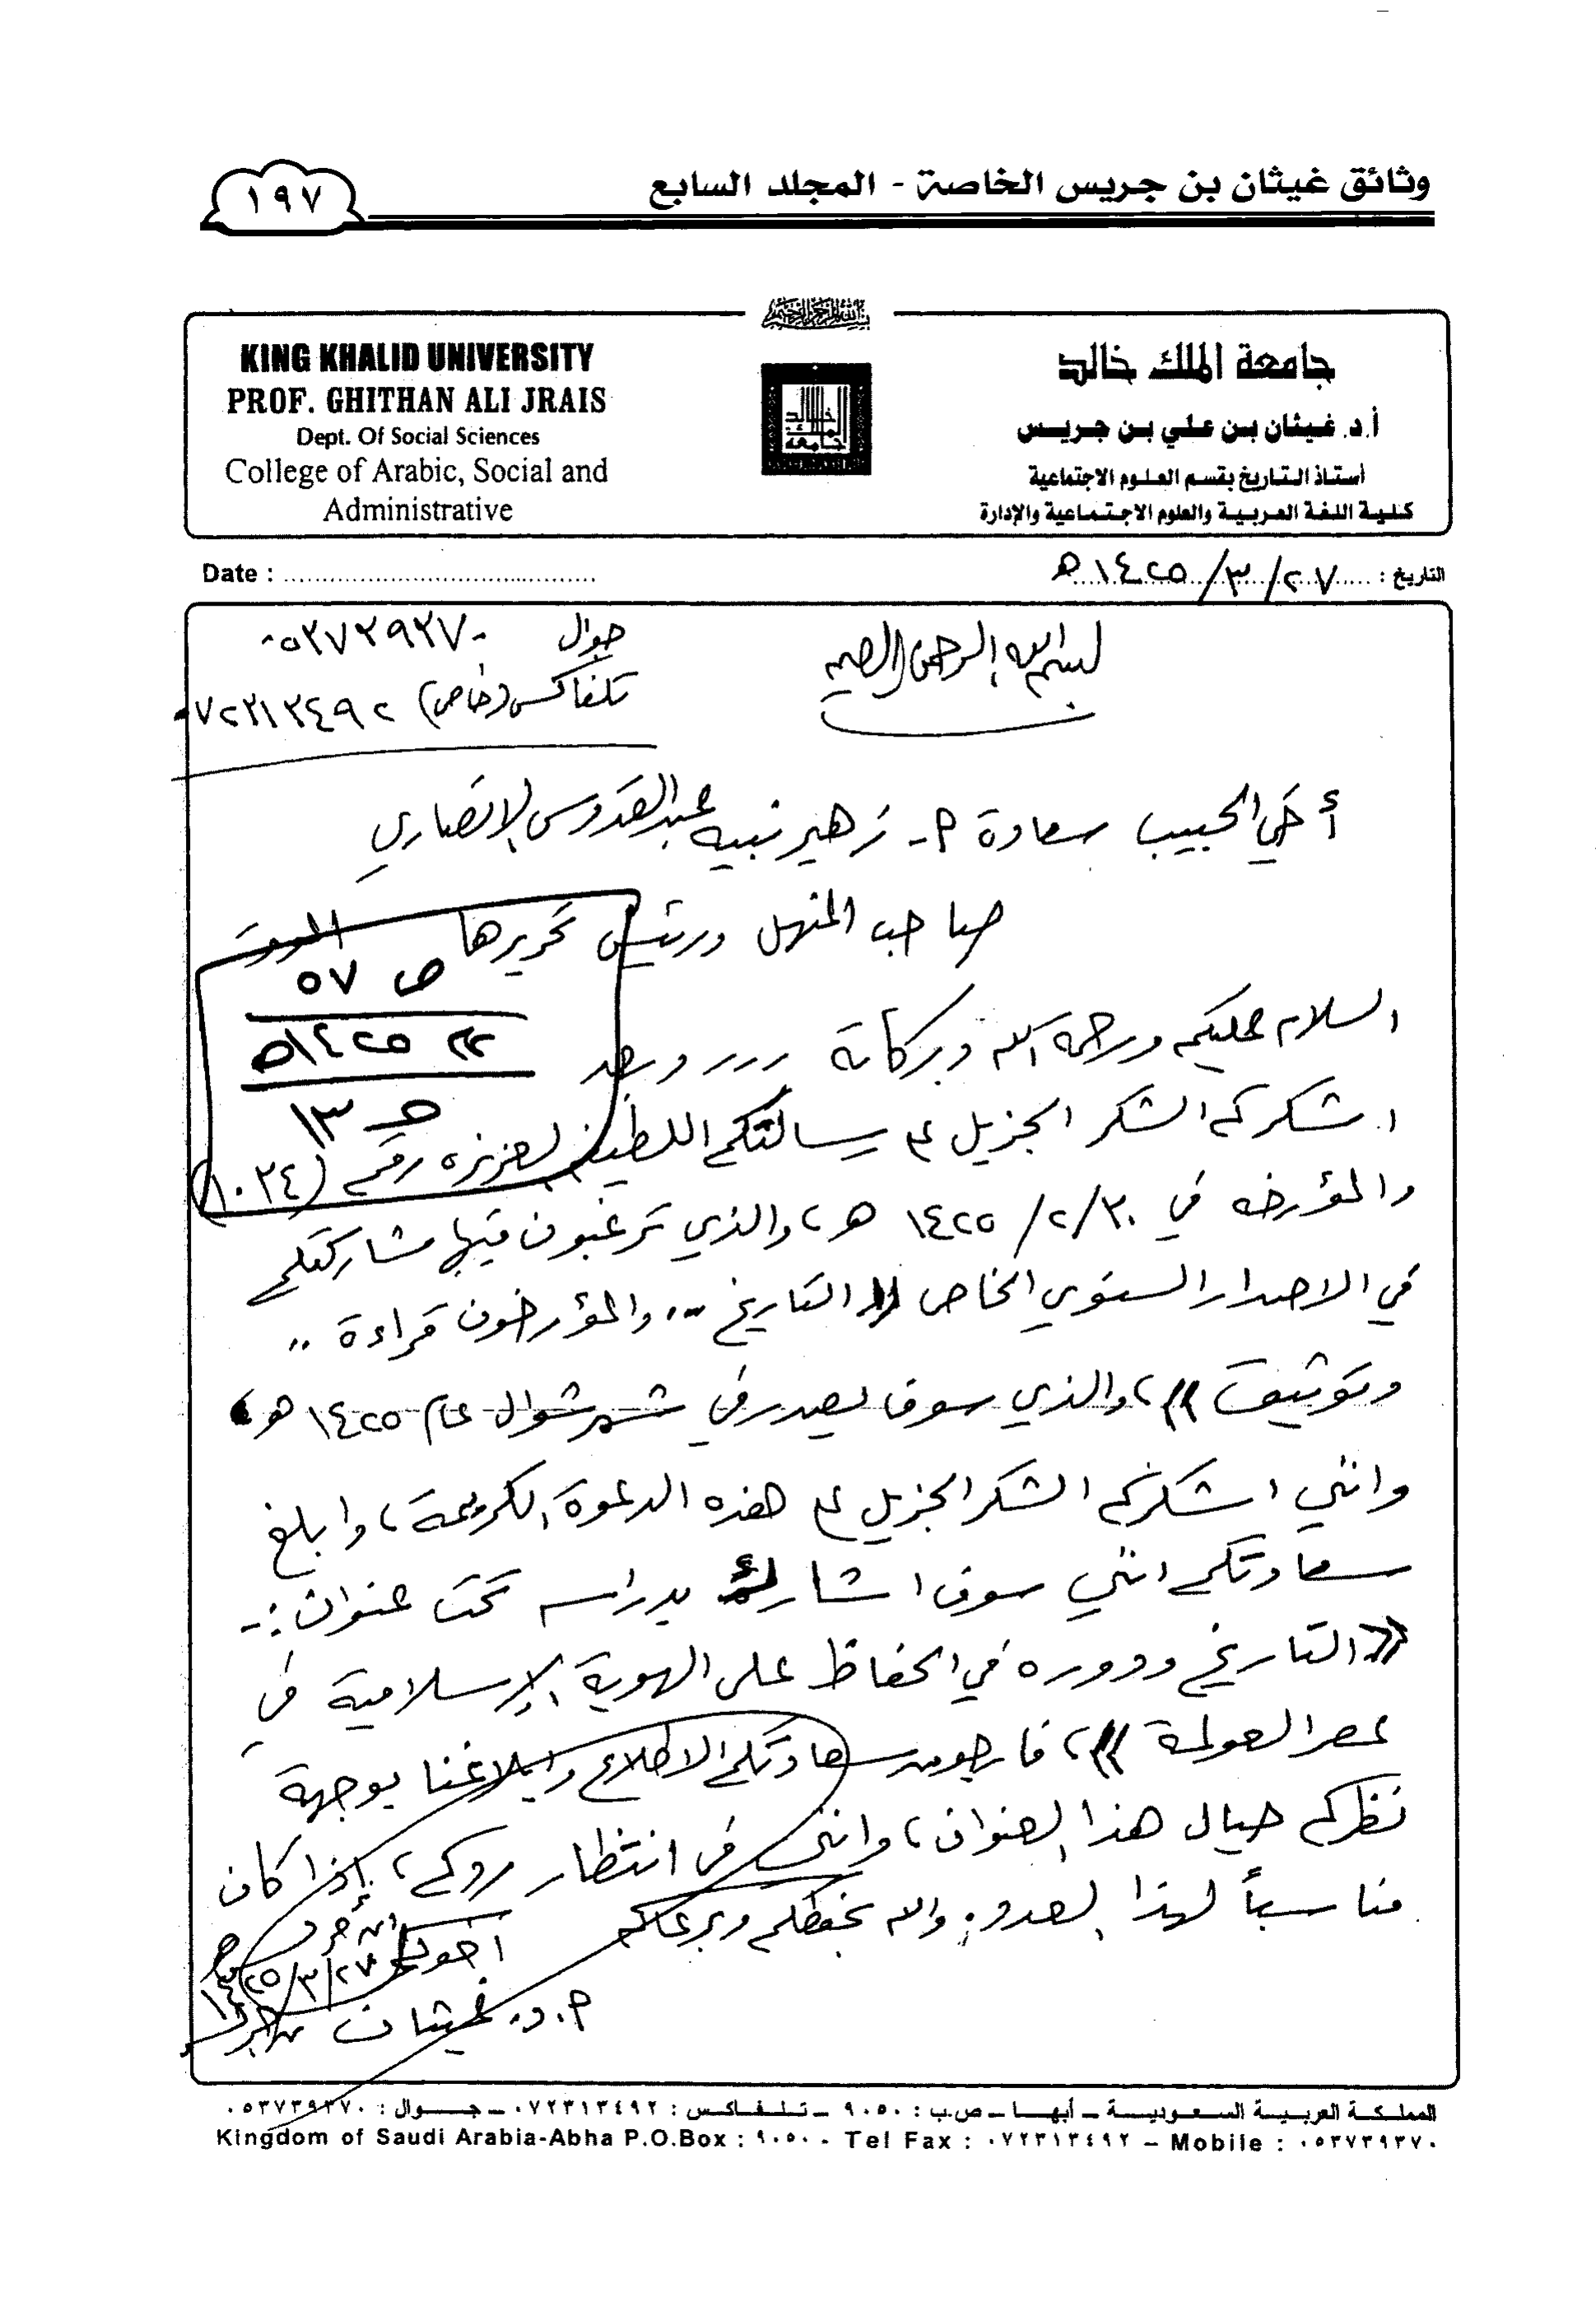 وثائق غيثان بن جريس الخاصة - المجلد السابع
١٩٧
بسم الله الرحمن الرحيم
جامعة الملك خالد
أ.د. غيثان بن علي بن جريس
أستاذ التاريخ بقسم العلوم الاجتماعية
كلية اللغة العربية والعلوم الاجتماعية والإدارة
KING KHALID UNIVERSITY
PROF. GHITHAN ALI JRAIS
Dept. Of Social Sciences
College of Arabic, Social and
Administrative
جامعة الملك خالد
التاريخ : ٢٧/٣/١٤٢٥هـ
Date :
بسم الله الرحمن الرحيم
جوال ٠٥٣٧٣٩٣٧٠
تلفاكس (خاص) ٠٧٢٣١٣٤٩٢
أخي الحبيب سعادة م- زهير نبيه عبدالقدوس الانصاري
صاحب المنهل ورئيس تحريرها
ص ٥٧
١٤٢٥هـ
جـ ١٣
السلام عليكم ورحمة الله وبركاتة ... وبعد
اشكركم الشكر الجزيل على رسالتكم اللطيفة العزيزة رقم (١٠٣٤)
والمؤرخه في ٣٠/٢/١٤٢٥هـ، والذي ترغبون فيها مشاركتكم
في الاصدار السنوي الخاص (( التاريخ .. والمؤرخون قراءة ..
وتوثيق ))، والذي سوف يصدر في شهر شوال عام ١٤٢٥هـ،
وانني اشكركم الشكر الجزيل على هذه الدعوة الكريمة، وابلغ
سعادتكم انني سوف اشارك بدراسه تحت عنوان :-
(( التاريخ ودوره في الحفاظ على الهوية الإسلامية في
عصر العولمة ))، فارجو من سعادتكم الاطلاع وإبلاغنا بوجهة
نظركم حيال هذا العنوان، وانني في انتظار ردكم، إذا كان
مناسباً لهذا العدد. والله يحفظكم ويرعاكم
اخوكم
٢٧/٣/١٤٢٥هـ
أ.د. غيثان بن جريس
المملكة العربية السعودية – أبها – ص.ب : ٩٠٥٠ – تلفاكس : ٠٧٢٣١٣٤٩٢ – جوال : ٠٥٣٧٣٩٣٧٠
Kingdom of Saudi Arabia-Abha P.O.Box : ٩٠٥٠ - Tel Fax : ٠٧٢٣١٣٤٩٢ – Mobile : ٠٥٣٧٣٩٣٧٠